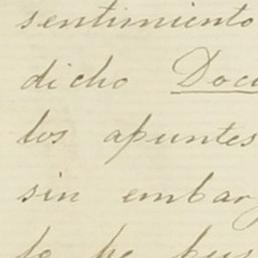 sentimiento
dicho Docu
los apuntes
sin embarg
lo he pues